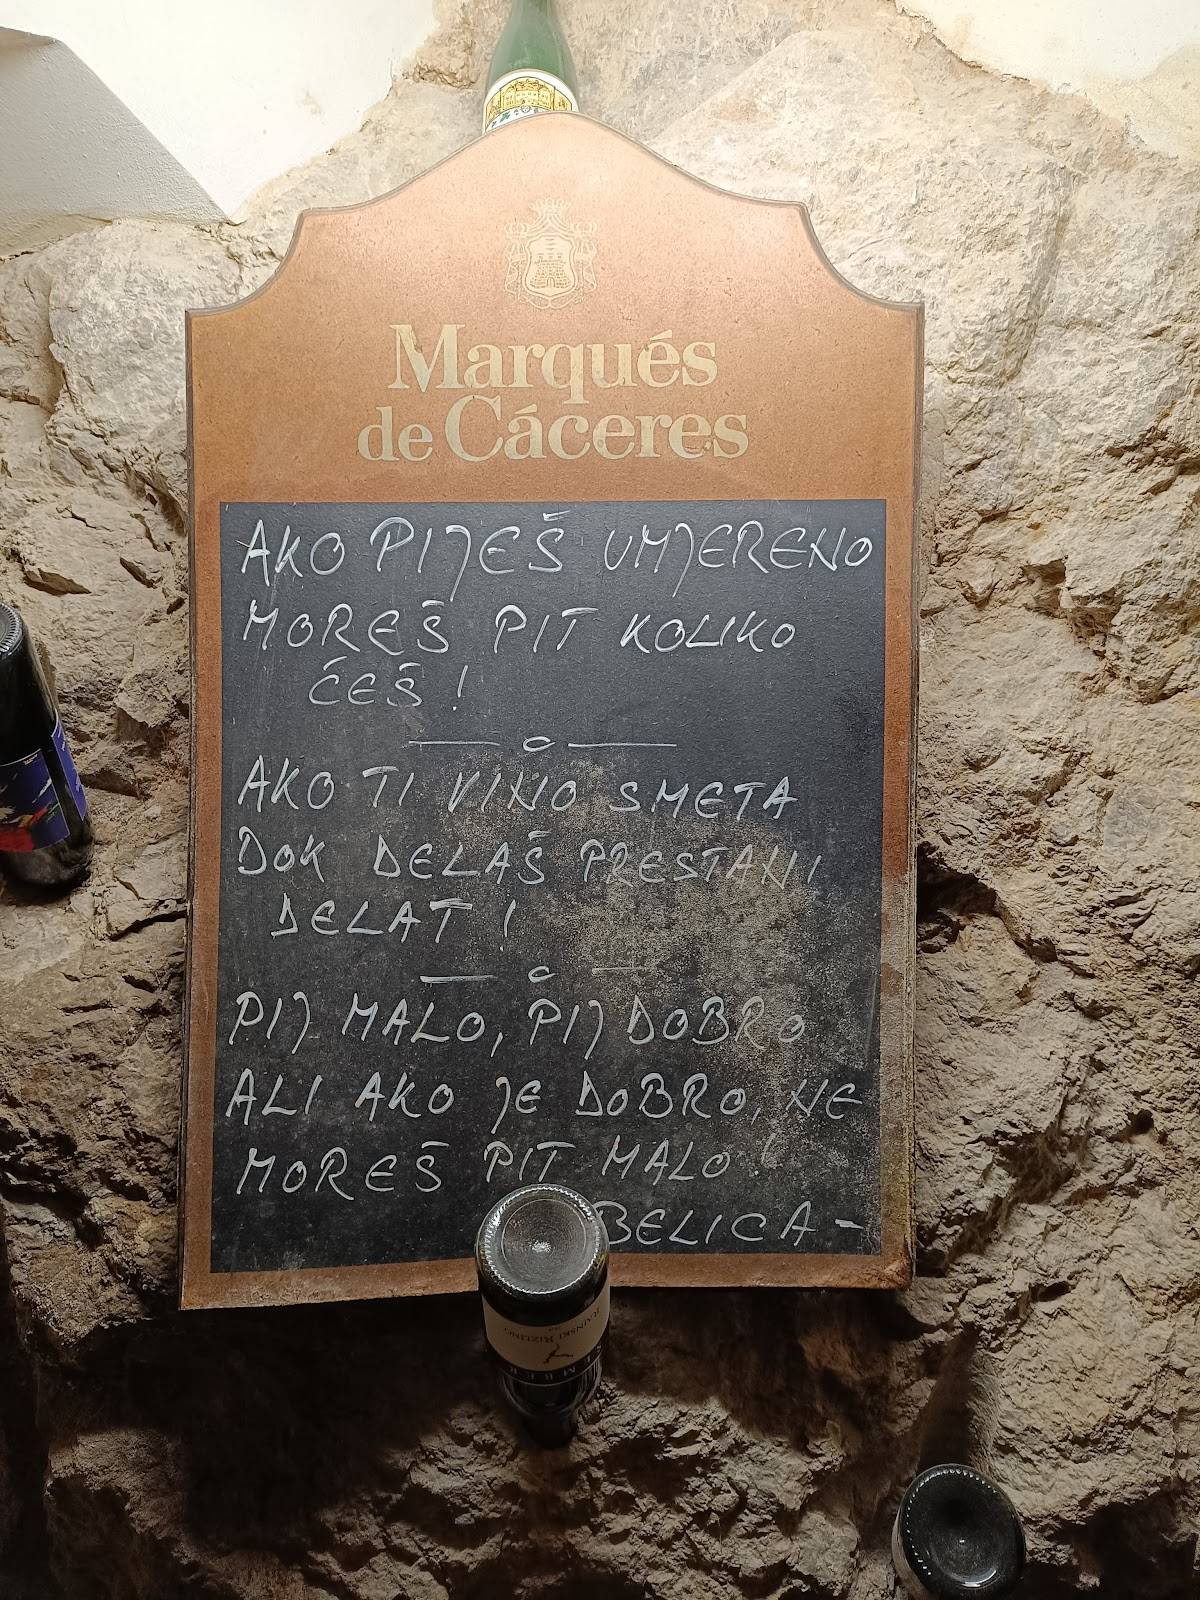 Marqués
de Cáceres
AKO PIJEŠ UMJERENO
MOREŠ PIT KOLIKO
ĆEŠ!
AKO TI VINO SMETA
DOK DELAŠ PRESTANI
DELAT!
PIJ MALO, PIJ DOBRO
ALI AKO JE DOBRO, NE
MOREŠ PIT MALO!
BELICA-
RIZLING